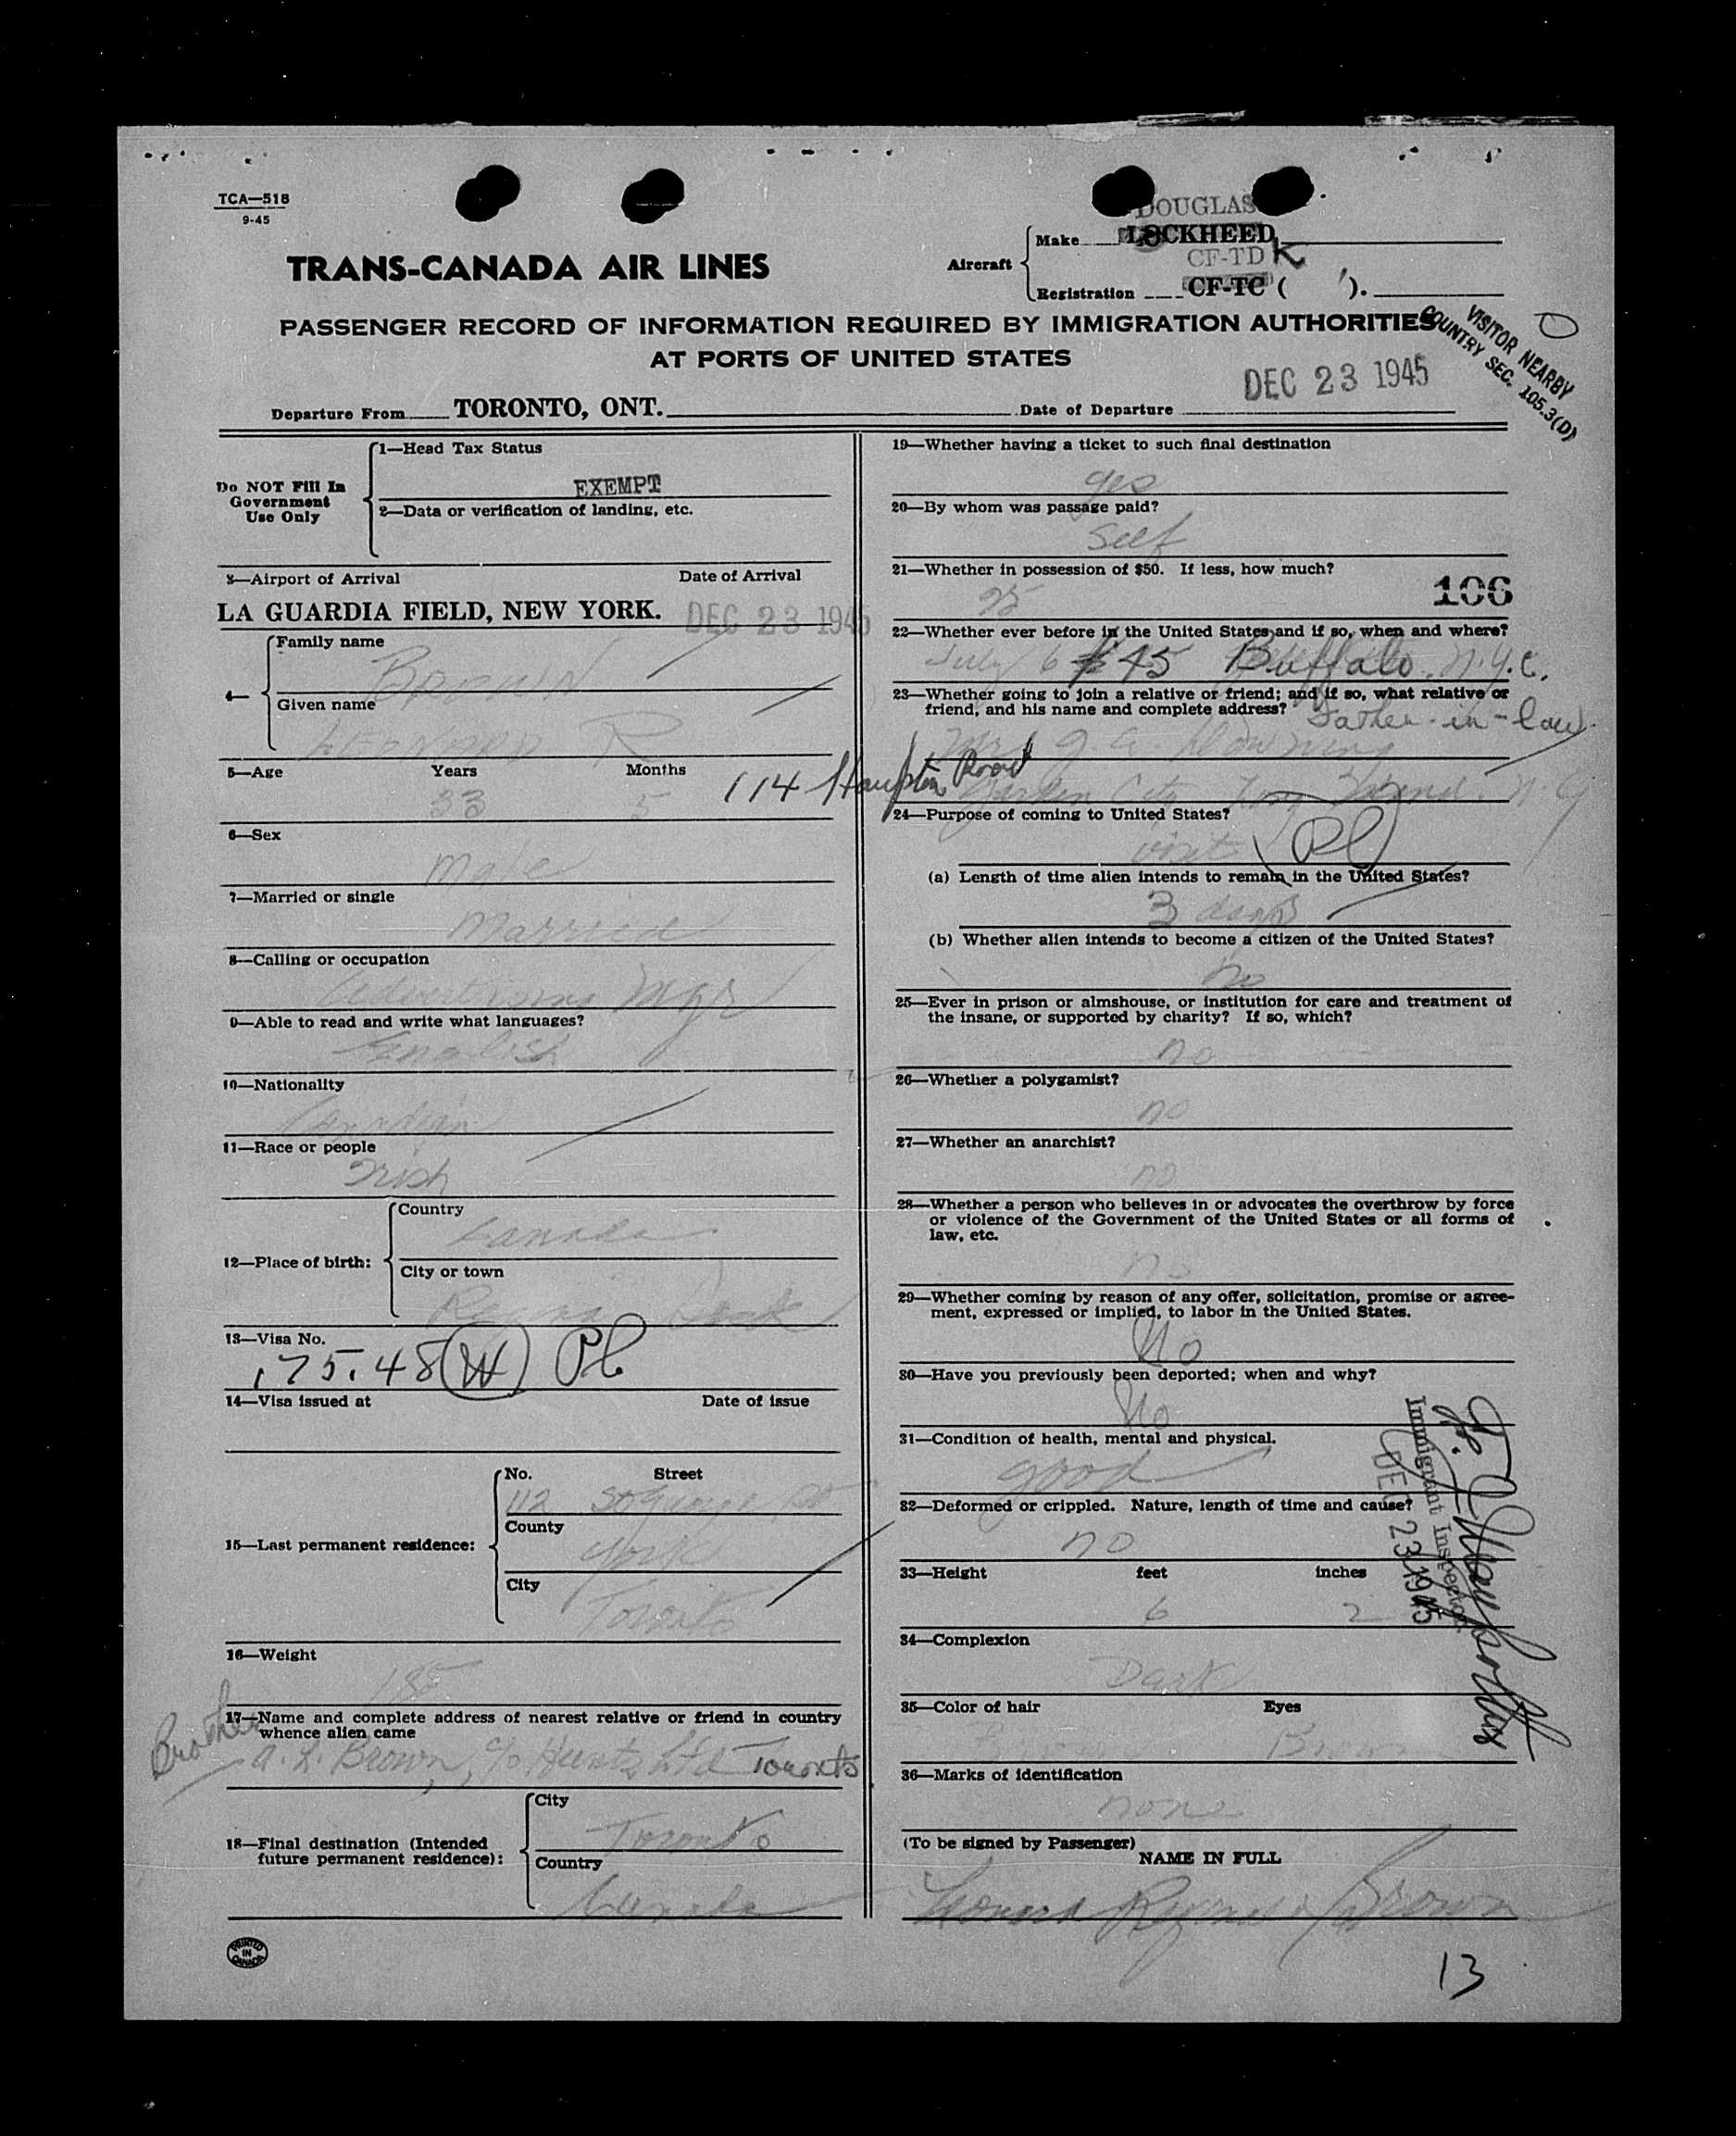 TCA—518
9-45
DOUGLAS
Make LOCKHEED
TRANS-CANADA AIR LINES
Aircraft
CF-TD K
Registration CF-TC ( ).
PASSENGER RECORD OF INFORMATION REQUIRED BY IMMIGRATION AUTHORITIES
AT PORTS OF UNITED STATES
VISITOR NEARBY
COUNTRY SEC. 105.3(D)
DEC 23 1945
Departure From TORONTO, ONT. Date of Departure
Do NOT Fill In
Government
Use Only
1—Head Tax Status
EXEMPT
2—Data or verification of landing, etc.
3—Airport of Arrival Date of Arrival
LA GUARDIA FIELD, NEW YORK. DEC 23 1945
4—
Family name
BROWN
Given name
LEONARD R
5—Age Years Months
33 5
6—Sex
Male
7—Married or single
Married
8—Calling or occupation
Advertising Mgr
9—Able to read and write what languages?
English
10—Nationality
Canadian
11—Race or people
Irish
12—Place of birth:
Country
Canada
City or town
Regina Sask
13—Visa No.
175.48 (W) Pl
14—Visa issued at Date of issue
15—Last permanent residence:
No. Street
112 St George St
County
York
City
Toronto
16—Weight
185
17—Name and complete address of nearest relative or friend in country
whence alien came
Brother
A. L. Brown, c/o Hunts Ltd Toronto
18—Final destination (Intended
future permanent residence):
City
Toronto
Country
Canada
PRINTED
IN
CANADA
19—Whether having a ticket to such final destination
yes
20—By whom was passage paid?
Self
21—Whether in possession of $50. If less, how much?
25
106
22—Whether ever before in the United States and if so, when and where?
July 6 45 Buffalo, N.Y.C.
23—Whether going to join a relative or friend; and if so, what relative or
friend, and his name and complete address? Father-in-law
Mr J. A. Downing
114 Hampton Road
Garden City, Long Island, N.Y
24—Purpose of coming to United States?
visit Pl
(a) Length of time alien intends to remain in the United States?
3 days
(b) Whether alien intends to become a citizen of the United States?
no
25—Ever in prison or almshouse, or institution for care and treatment of
the insane, or supported by charity? If so, which?
no
26—Whether a polygamist?
no
27—Whether an anarchist?
no
28—Whether a person who believes in or advocates the overthrow by force
or violence of the Government of the United States or all forms of
law, etc.
no
29—Whether coming by reason of any offer, solicitation, promise or agree-
ment, expressed or implied, to labor in the United States.
No
30—Have you previously been deported; when and why?
No
31—Condition of health, mental and physical.
good
Immigrant Inspector
DEC 23 1945
32—Deformed or crippled. Nature, length of time and cause?
no
33—Height feet inches
6 2
34—Complexion
Dark
35—Color of hair Eyes
Brown
36—Marks of identification
none
(To be signed by Passenger)
NAME IN FULL
Leonard Reginald Brown
13